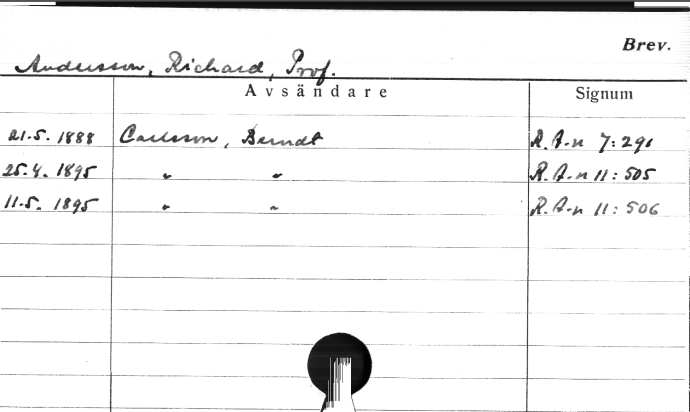 Brev.
Andersson, Richard, Prof.
Avsändare Signum
21.5. 1888 Carlsson, Berndt R.A-n 7:291
25.4. 1895 " " R.A-n 11:505
11.5. 1895 " " R.A-n 11:506